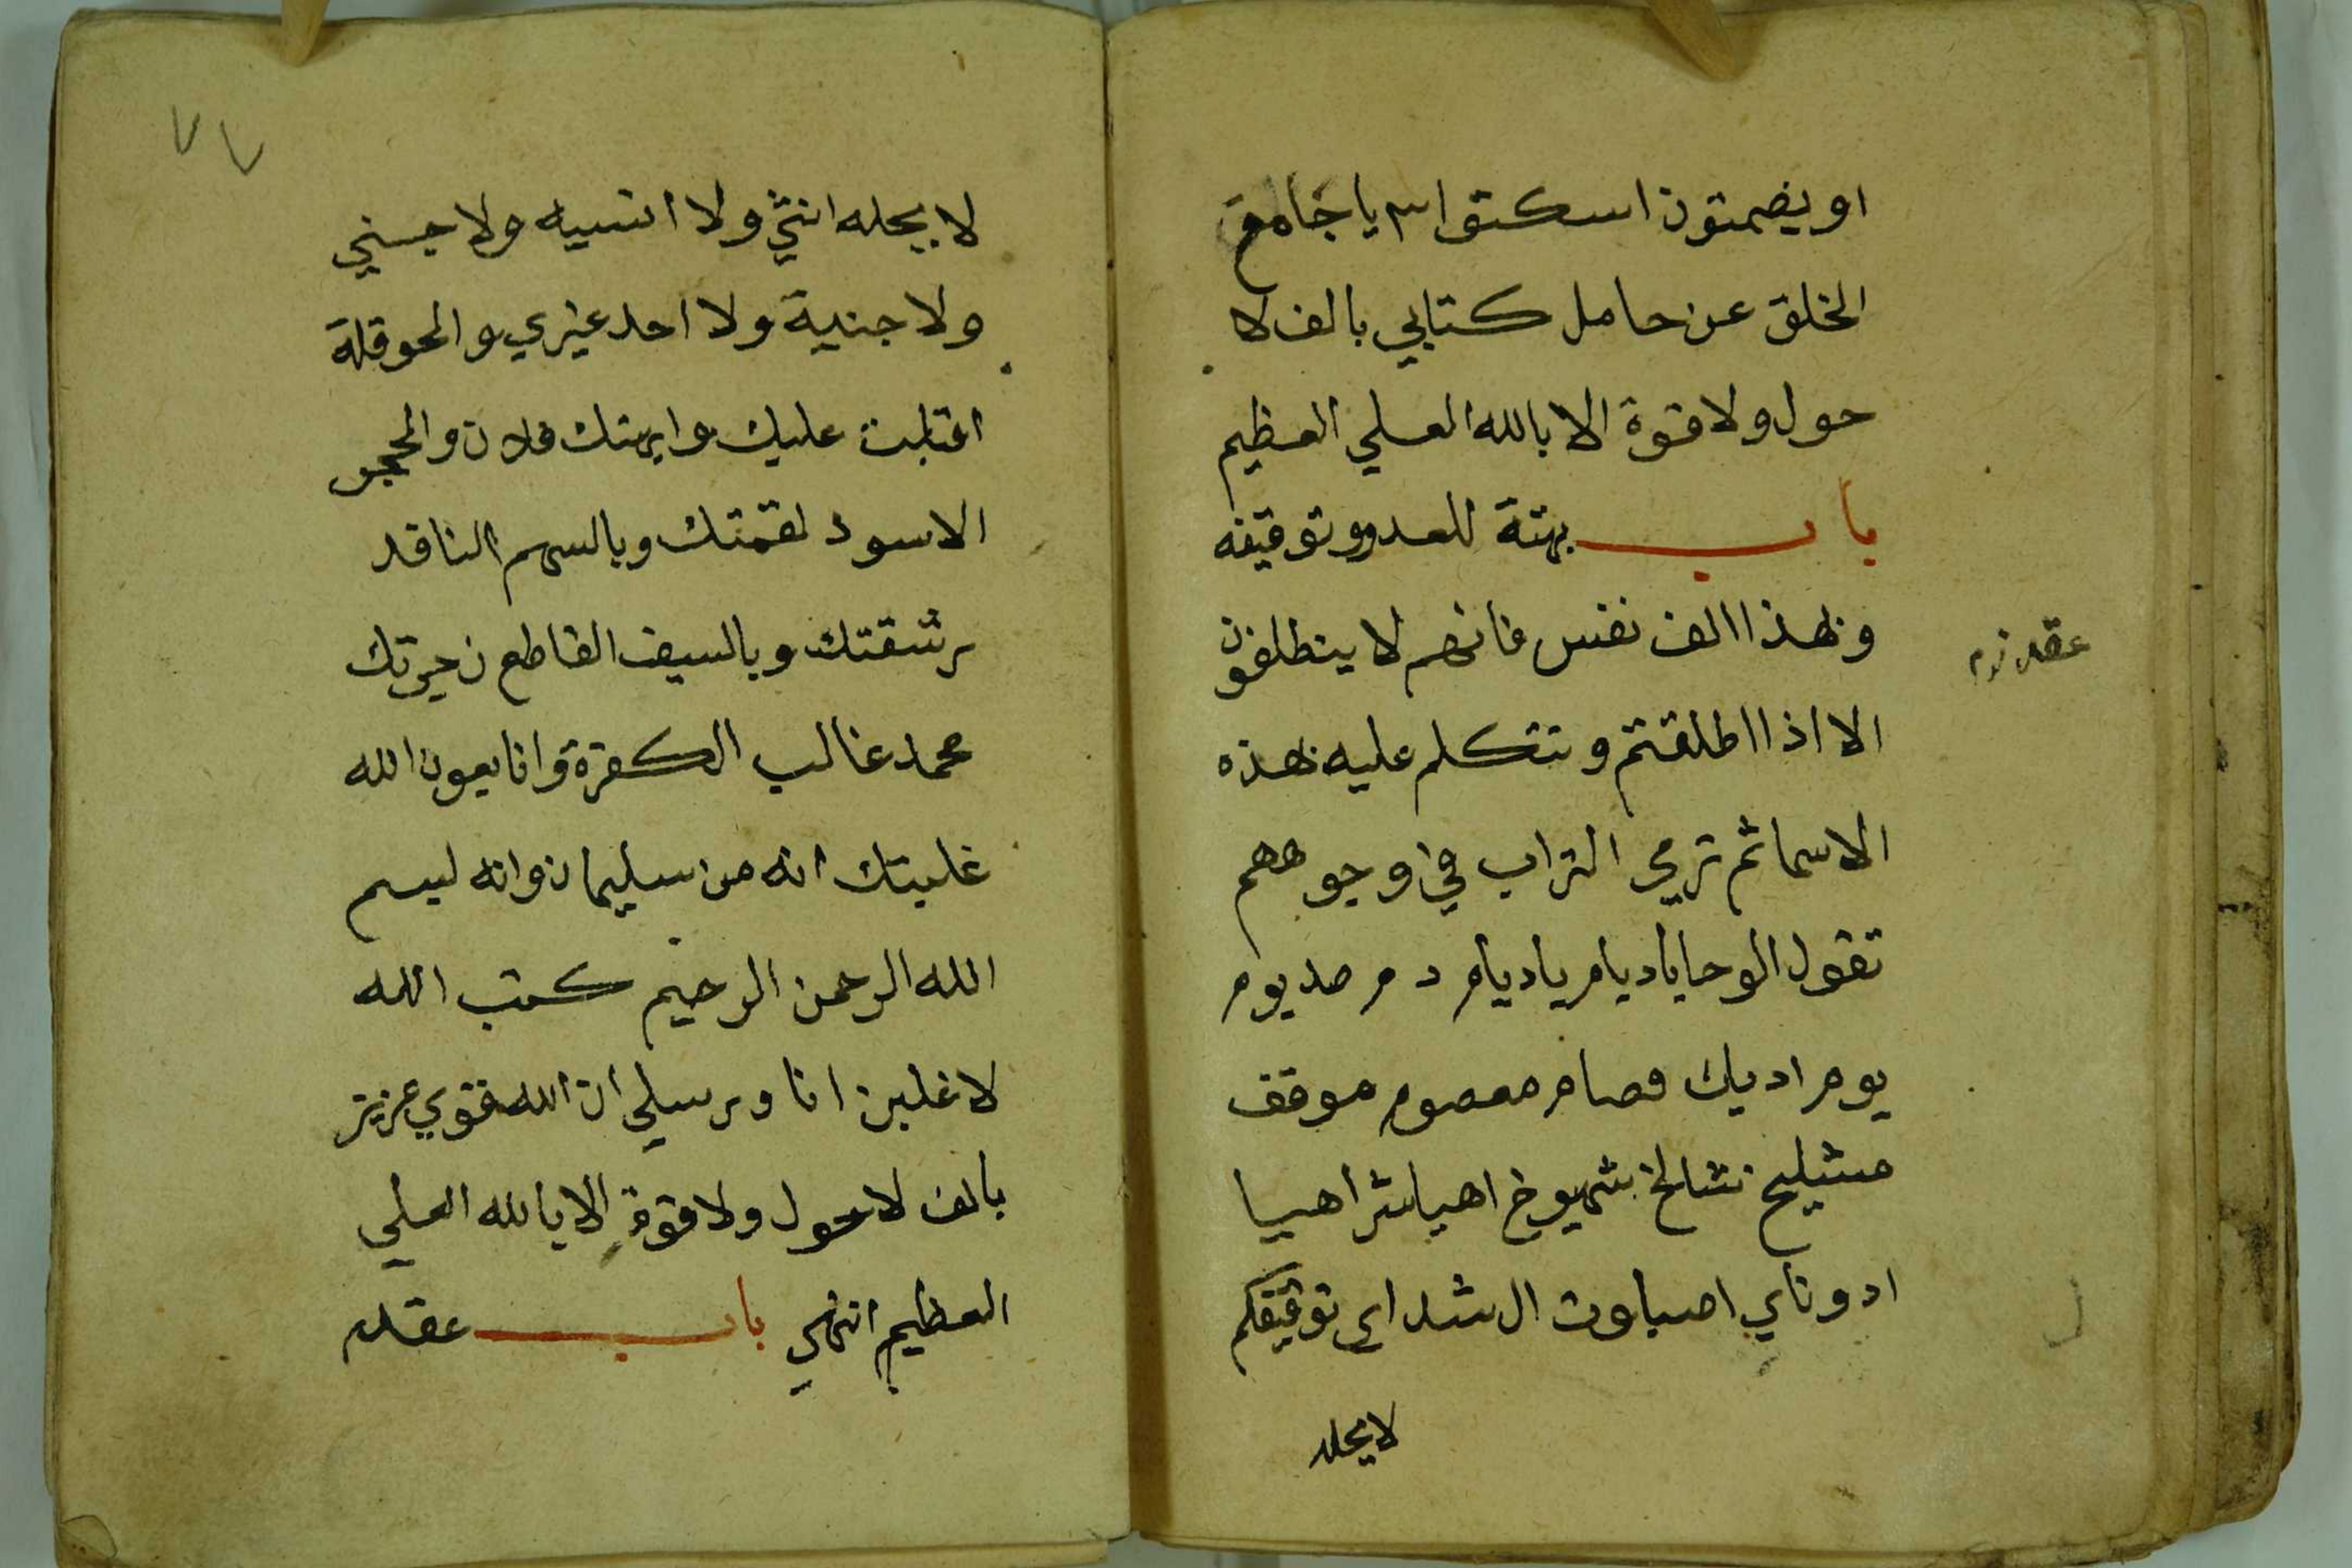 او يضمتون اسكتوا ٣ يا جامع
الخلق عن حامل كتابي بالف لا
حول ولا قوة الا بالله العلي العظيم
باب بهتة للعدو وتوقيفه
وبهذا الف نفس فانهم لا ينطلقون
الا اذا اطلقتم وتتكلم عليه بهذه
الاسما ثم ترمي التراب في وجوههم
تقول الوحا يا ديام يا ديام د م مديوم
يوم اديك مصام معصوم موقف
مشليح نشالخ شميوخ اهيا شراهيا
ادوناي اصباوت ال شداى توقيفكم
لا يحله
عقد
٧٧
لا يحله انثي ولا انسيه ولا جني
ولا جنية ولا احد غيري والحوقلة
اقلبت عليك وابهتك فلان والحجر
الاسود لقمتك وبالسهم النافد
رشقتك وبالسيف القاطع نحرتك
محمد غالب الكفرة وانا بعون الله
غلبتك انه من سليمان وانه لبسم
الله الرحمن الرحيم كتب الله
لاغلبن انا ورسلي ان الله قوي عزيز
بالف لا حول ولا قوة الا بالله العلي
العظيم انتهي باب عقد